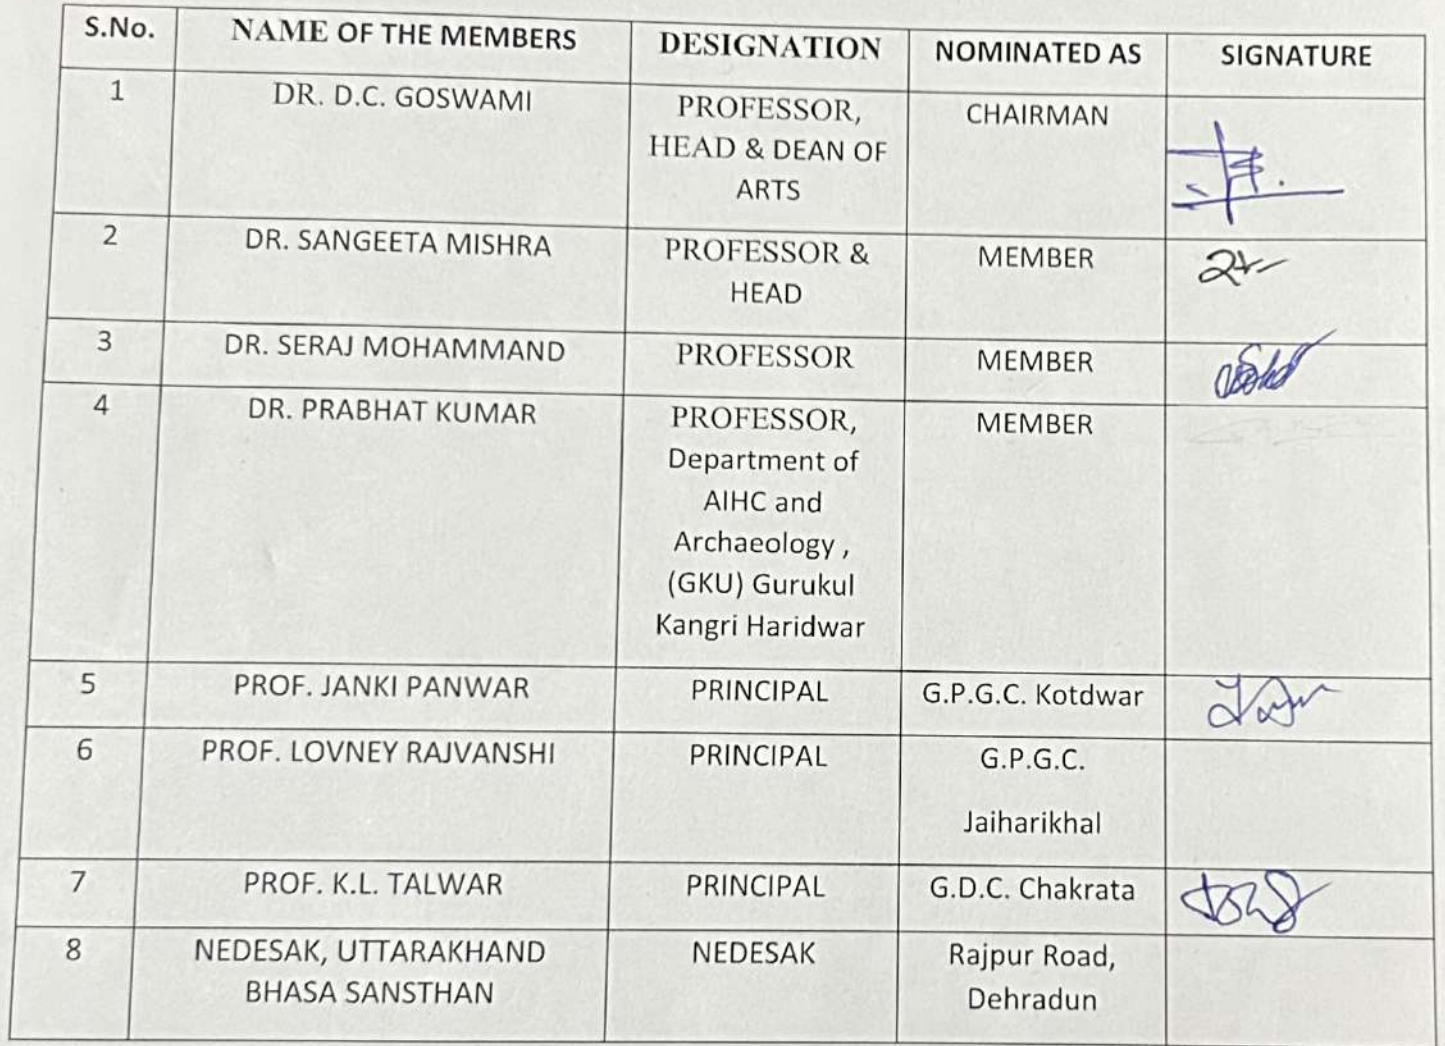 S.No. NAME OF THE MEMBERS DESIGNATION NOMINATED AS SIGNATURE
1 DR. D.C. GOSWAMI PROFESSOR, CHAIRMAN
HEAD & DEAN OF
ARTS
2 DR. SANGEETA MISHRA PROFESSOR & MEMBER
HEAD
3 DR. SERAJ MOHAMMAND PROFESSOR MEMBER
4 DR. PRABHAT KUMAR PROFESSOR, MEMBER
Department of
AIHC and
Archaeology ,
(GKU) Gurukul
Kangri Haridwar
5 PROF. JANKI PANWAR PRINCIPAL G.P.G.C. Kotdwar
6 PROF. LOVNEY RAJVANSHI PRINCIPAL G.P.G.C.
Jaiharikhal
7 PROF. K.L. TALWAR PRINCIPAL G.D.C. Chakrata
8 NEDESAK, UTTARAKHAND NEDESAK Rajpur Road,
BHASA SANSTHAN Dehradun